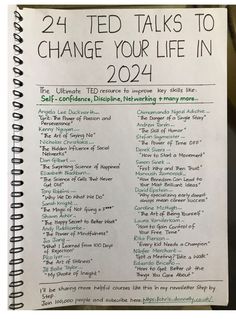 24 TED TALKS TO
CHANGE YOUR LIFE IN
2024
The Ultimate TED resource to improve key skills like:
Self-confidence, Discipline, Networking + many more...
Angela Lee Duckworth
"Grit: The Power of Passion and
Perseverance"
Kenny Nguyen
"The Art of Saying No"
Nicholas Christakis
"The Hidden Influence of Social
Networks"
Dan Gilbert
"The Surprising Science of Happiness"
Elizabeth Blackburn
"The Science of Cells That Never
Get Old"
Tony Robbins
"Why We Do What We Do"
Sarah Knight
"The Magic of Not Giving a F***"
Shawn Achor
"The Happy Secret to Better Work"
Andy Puddicombe
"The Power of Mindfulness"
Jia Jiang
"What I Learned From 100 Days
of Rejection"
Pico Iyer
"The Art of Stillness"
Jill Bolte Taylor
"My Stroke of Insight"
Chimamanda Ngozi Adichie
"The Danger of a Single Story"
Andrew Tarvin
"The Skill of Humor"
Stefan Sagmeister
"The Power of Time Off"
Derek Sivers
"How to Start a Movement"
Simon Sinek
"First Why and Then Trust"
Manoush Zomorodi
"How Boredom Can Lead to
Your Most Brilliant Ideas"
David Epstein
"Why specializing early doesn't
always mean career success"
Caroline McHugh
"The Art of Being Yourself"
Laura Vanderkam
"How to Gain Control of
Your Free Time"
Rita Pierson
"Every Kid Needs a Champion"
Nilofer Merchant
"Got a Meeting? Take a Walk"
Eduardo Briceño
"How to Get Better at the
Things You Care About"
I'll be sharing more helpful courses like this in my newsletter Step by
Step.
Join 100,000 people and subscribe here: